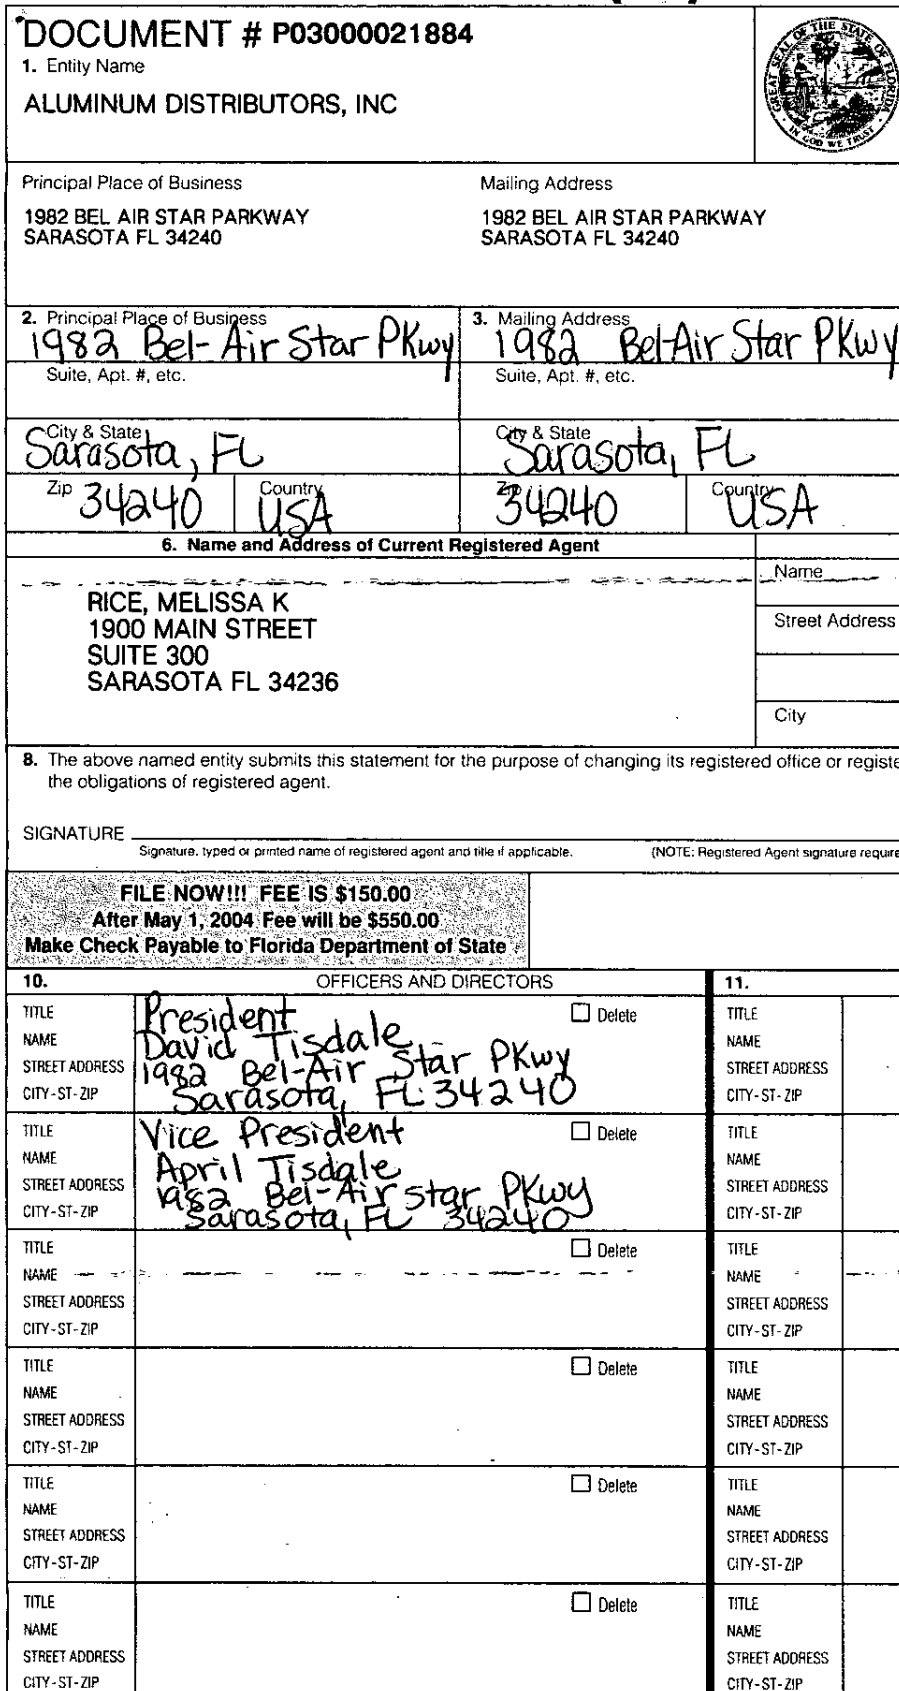 DOCUMENT # P03000021884
1. Entity Name
ALUMINUM DISTRIBUTORS, INC
GREAT SEAL OF THE STATE OF FLORIDA
IN GOD WE TRUST
Principal Place of Business
Mailing Address
1982 BEL AIR STAR PARKWAY
SARASOTA FL 34240
1982 BEL AIR STAR PARKWAY
SARASOTA FL 34240
2. Principal Place of Business
1982 Bel-Air Star PKwy
3. Mailing Address
1982 Bel-Air Star PKwy
Suite, Apt. #, etc.
Suite, Apt. #, etc.
City & State
Sarasota, FL
City & State
Sarasota, FL
Zip 34240
Country
USA
Zip
34240
Country
USA
6. Name and Address of Current Registered Agent
Name
RICE, MELISSA K
1900 MAIN STREET
SUITE 300
SARASOTA FL 34236
Street Address
City
8. The above named entity submits this statement for the purpose of changing its registered office or registe
the obligations of registered agent.
SIGNATURE
Signature, typed or printed name of registered agent and title if applicable.
(NOTE: Registered Agent signature require
FILE NOW!!! FEE IS $150.00
After May 1, 2004 Fee will be $550.00
Make Check Payable to Florida Department of State
10. OFFICERS AND DIRECTORS
11.
TITLE President Delete
NAME David Tisdale
STREET ADDRESS 1982 Bel-Air Star PKwy
CITY-ST-ZIP Sarasota, FL 34240
TITLE
NAME
STREET ADDRESS
CITY-ST-ZIP
TITLE Vice President Delete
NAME April Tisdale
STREET ADDRESS 1982 Bel-Air Star PKwy
CITY-ST-ZIP Sarasota, FL 34240
TITLE
NAME
STREET ADDRESS
CITY-ST-ZIP
TITLE Delete
NAME
STREET ADDRESS
CITY-ST-ZIP
TITLE
NAME
STREET ADDRESS
CITY-ST-ZIP
TITLE Delete
NAME
STREET ADDRESS
CITY-ST-ZIP
TITLE
NAME
STREET ADDRESS
CITY-ST-ZIP
TITLE Delete
NAME
STREET ADDRESS
CITY-ST-ZIP
TITLE
NAME
STREET ADDRESS
CITY-ST-ZIP
TITLE Delete
NAME
STREET ADDRESS
CITY-ST-ZIP
TITLE
NAME
STREET ADDRESS
CITY-ST-ZIP